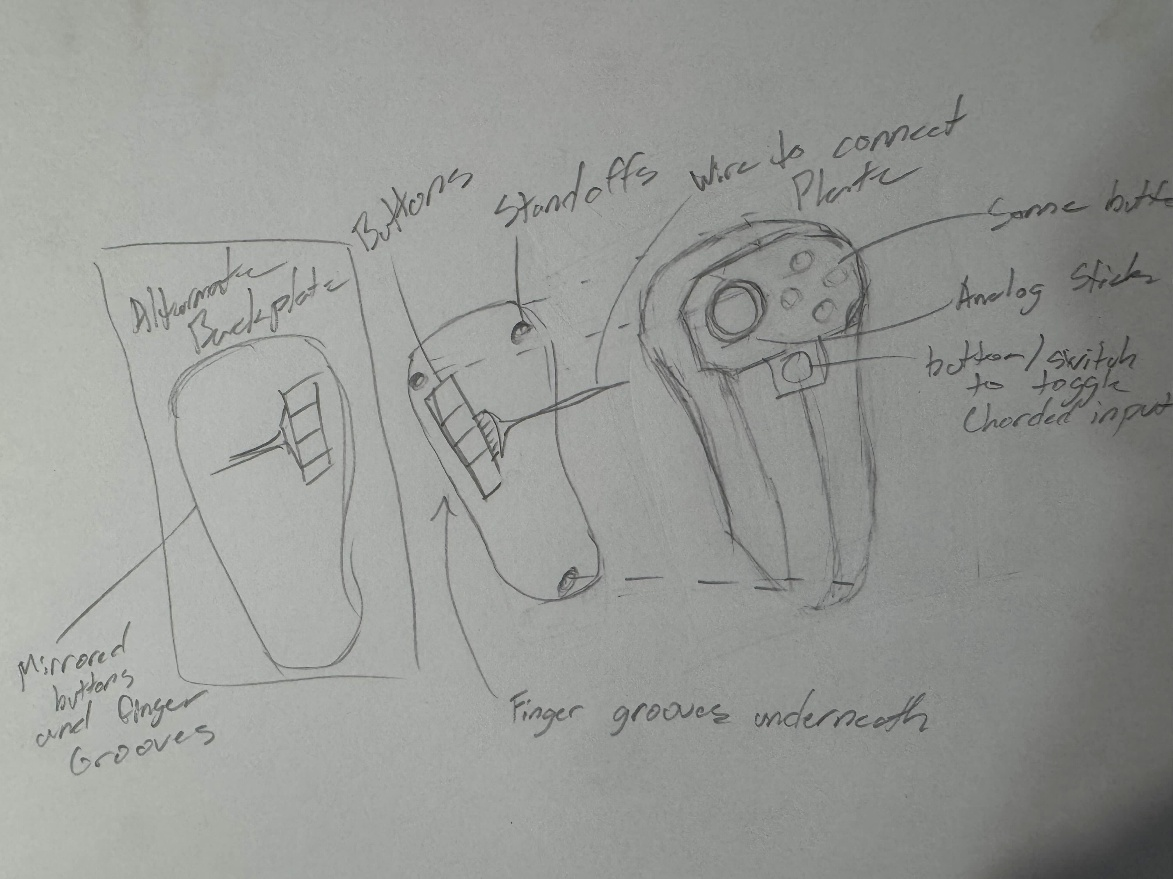 Alternate
Backplate
Buttons
Standoffs
wire to connect
Plate
Some butto
Analog Stick
button/switch
to toggle
Chorded input
Mirrored
buttons
and finger
Grooves
Finger grooves underneath